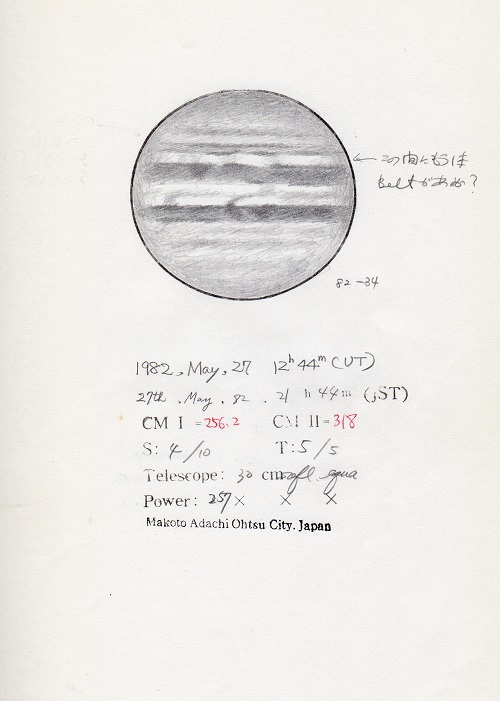 ← この間にもう1本
beltがあるか?
82-34
1982, May, 27 12h 44m (UT)
27th, May, 82, 21 h 44m (JST)
CM I = 256.2 CM II = 318
S: 4/10 T: 5/5
Telescope: 30 cm refl. equa
Power: 257× × ×
Makoto Adachi Ohtsu City, Japan